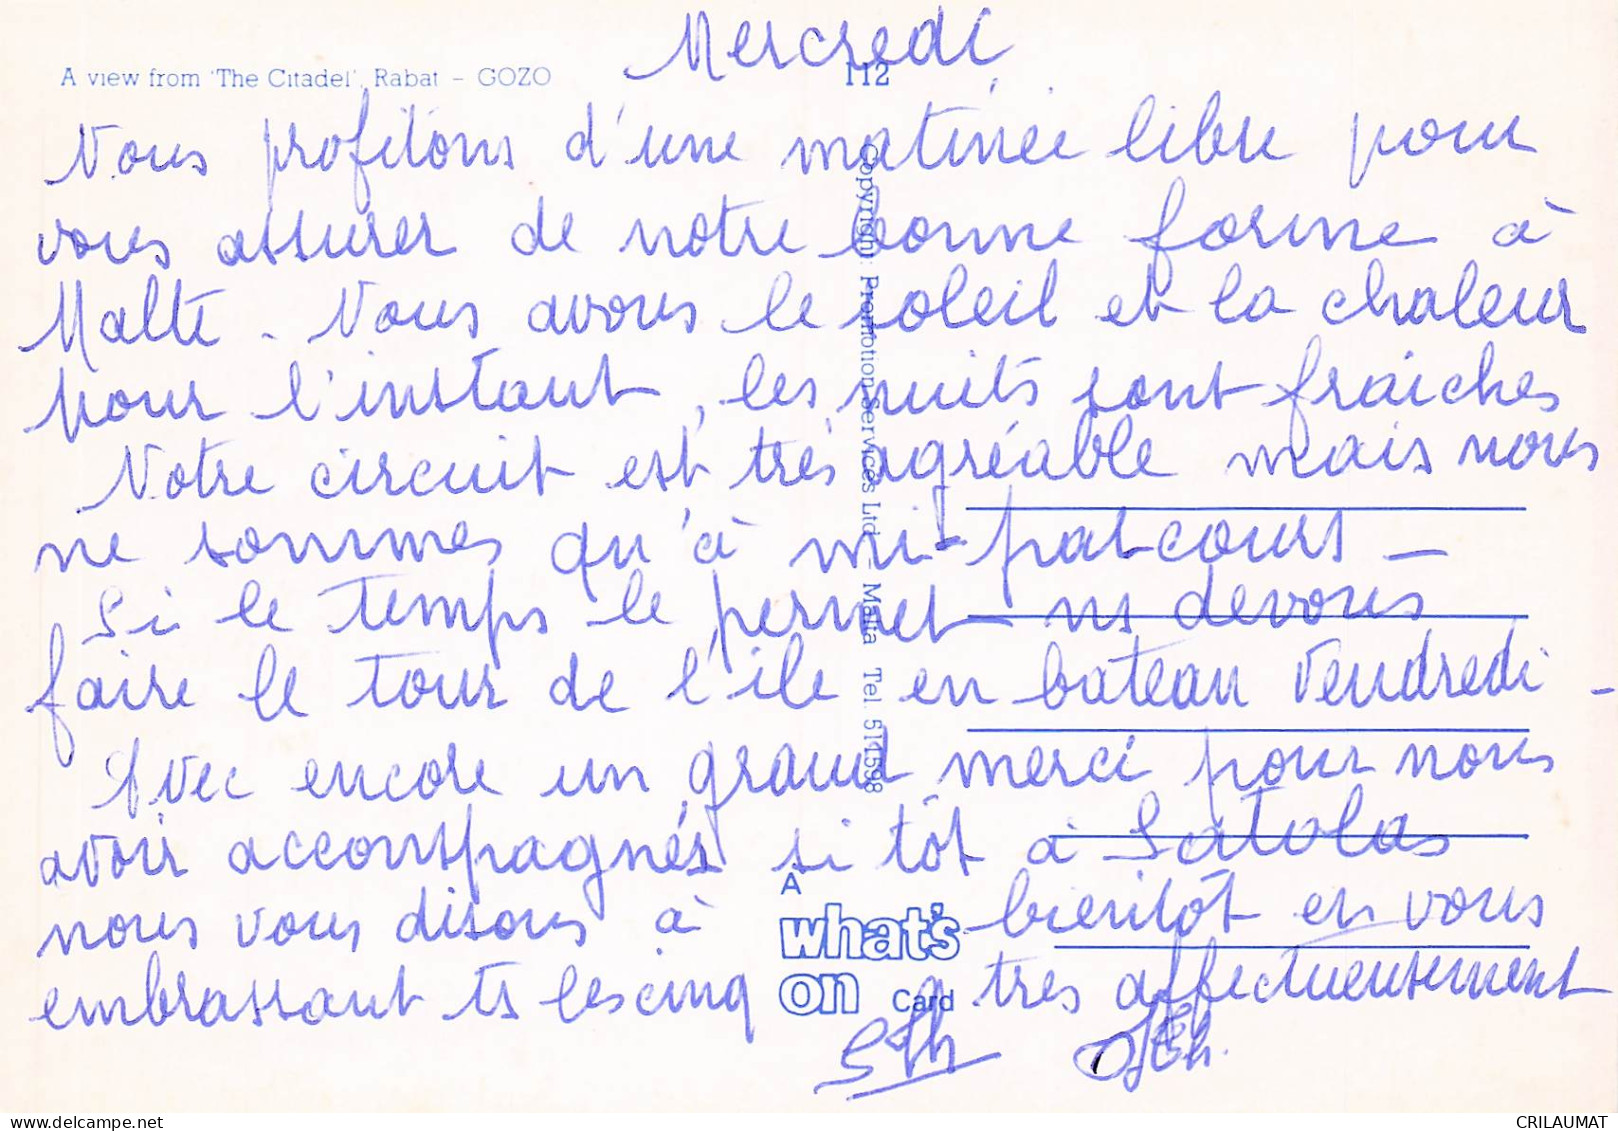 Mercredi
A view from 'The Citadel', Rabat – GOZO
112
Nous profitons d'une matinée libre pour
vous assurer de notre bonne forme à
Malte - Nous avons le soleil et la chaleur
pour l'instant, les nuits sont fraîches
Notre circuit est très agréable mais nous
ne sommes qu'à mi-parcours -
Si le temps le permet ns devons
faire le tour de l'île en bateau Vendredi -
Avec encore un grand merci pour nous
avoir accompagnés si tôt à Satolas
nous vous disons à bientôt en vous
embrassant ts les cinq très affectueusement
Copyright: Promotion Services Ltd. - Malta Tel. 511598
A
what's
on card
CRILAUMAT